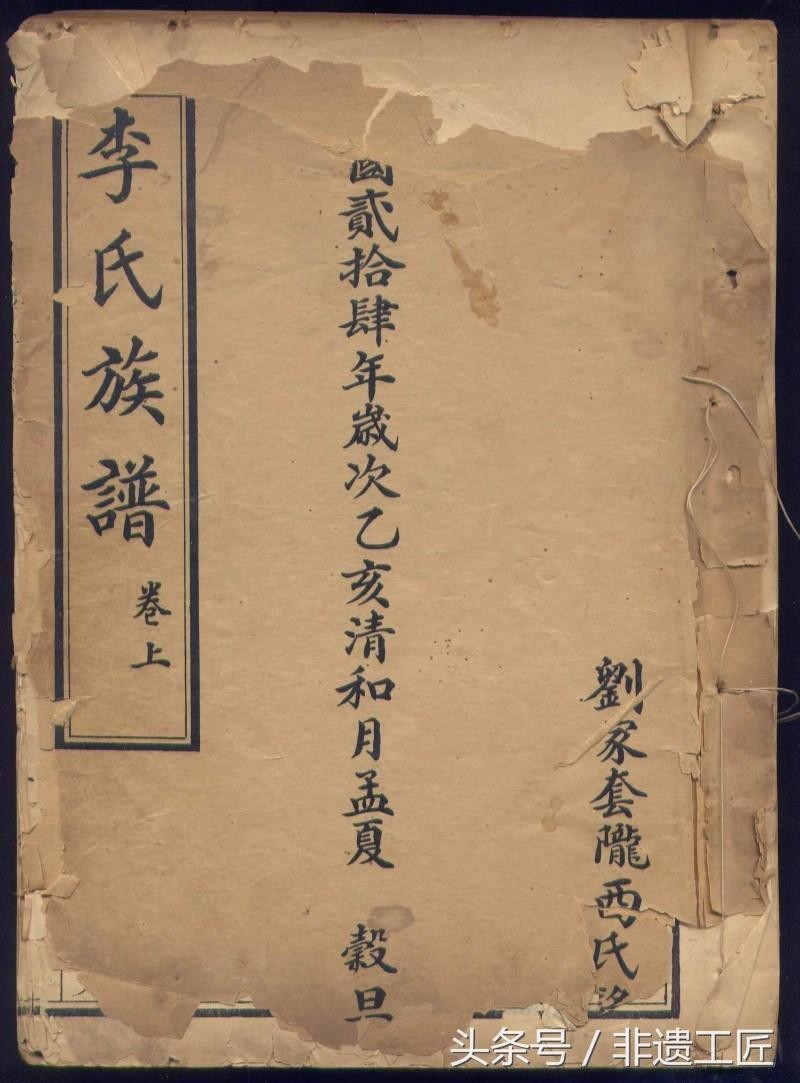 劉家套隴西氏
國貳拾肆年歲次乙亥清和月孟夏 穀旦
李氏族譜
卷上
头条号 / 非遗工匠